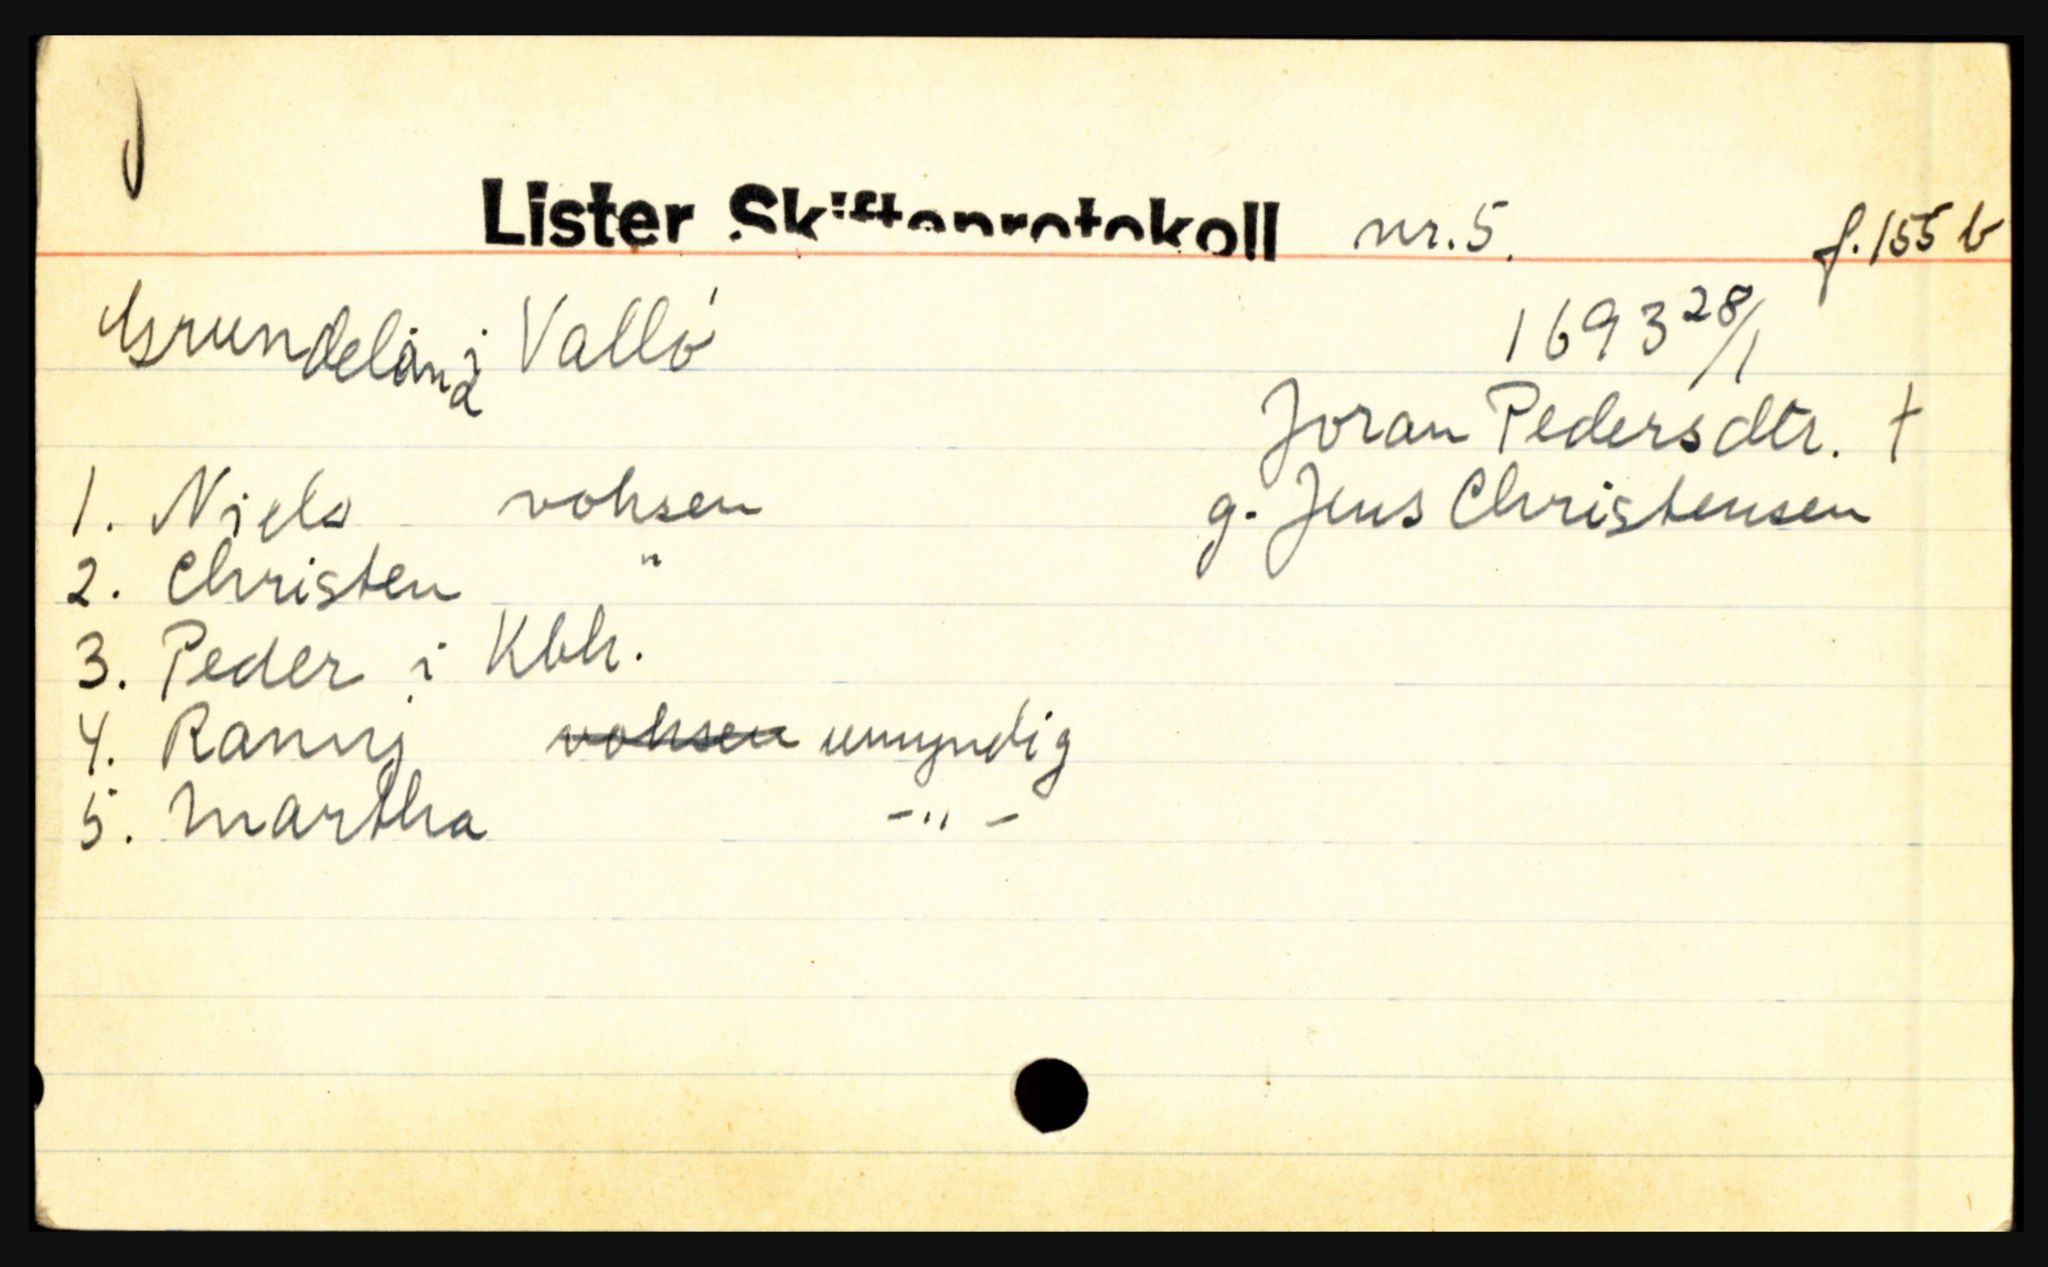 Lister Skifteprotokoll nr. 5. f. 155 b
Grundeland i Vallø 1693 28/1
Joran Pedersdtr. †
1. Niels voksen g. Jens Christensen
2. Christen "
3. Peder i Kbh.
4. Ranni voksen umyndig
5. Martha -"-